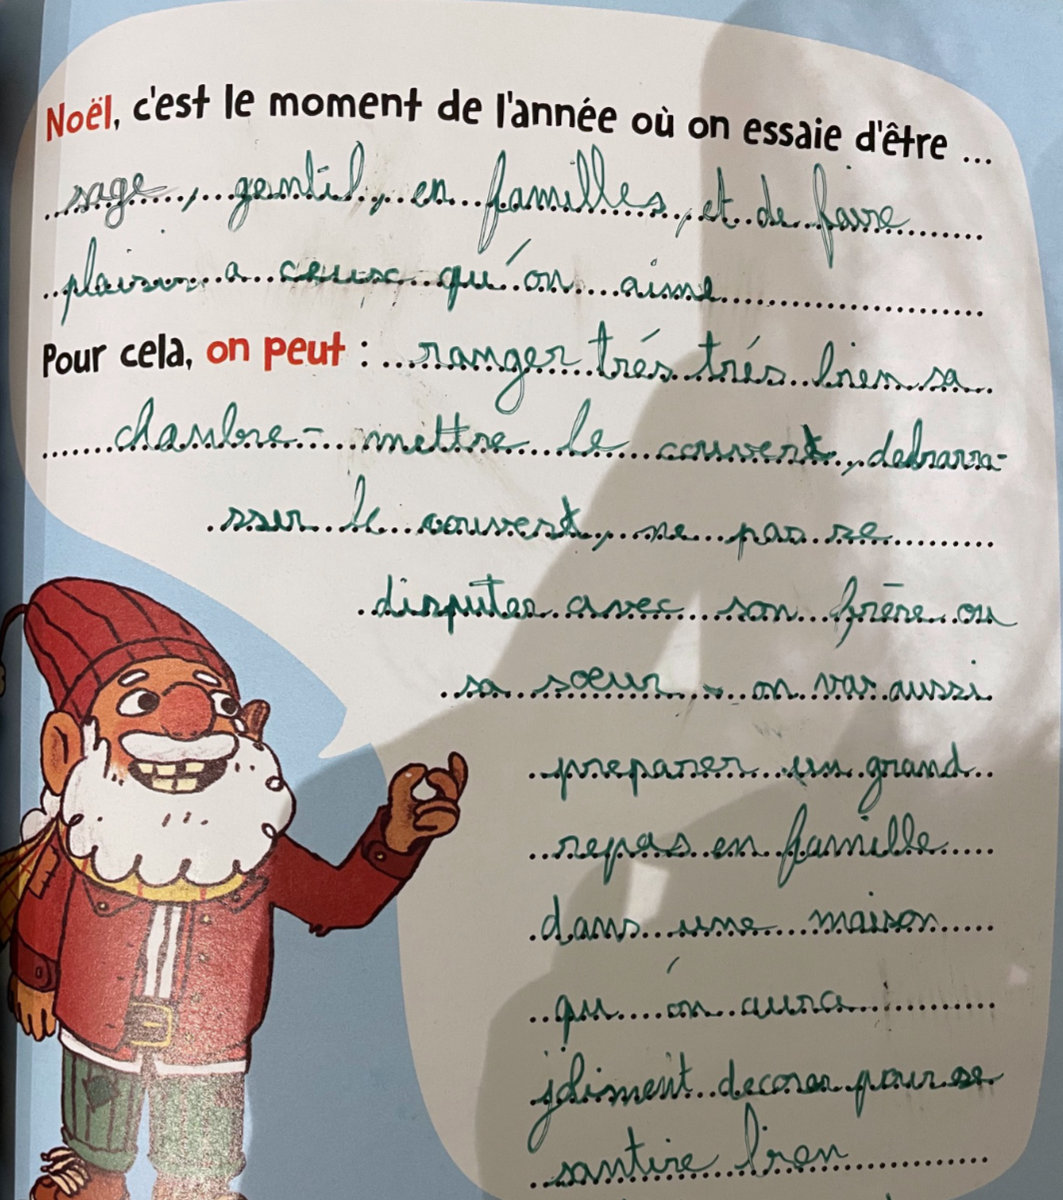 Noël, c'est le moment de l'année où on essaie d'être ...
sage, gentil, en familles, et de faire
plaisir a ceusc qu'on aime
Pour cela, on peut : ranger trés trés bien sa
chambre - mettre le couvert, debarra-
sser le couvert, ne pas se
disputer avec son frère ou
sa soeur - on vas aussi
preparer un grand
repas en famille
dans une maison
qu'on aura
joliment decorer pour se
santire bien